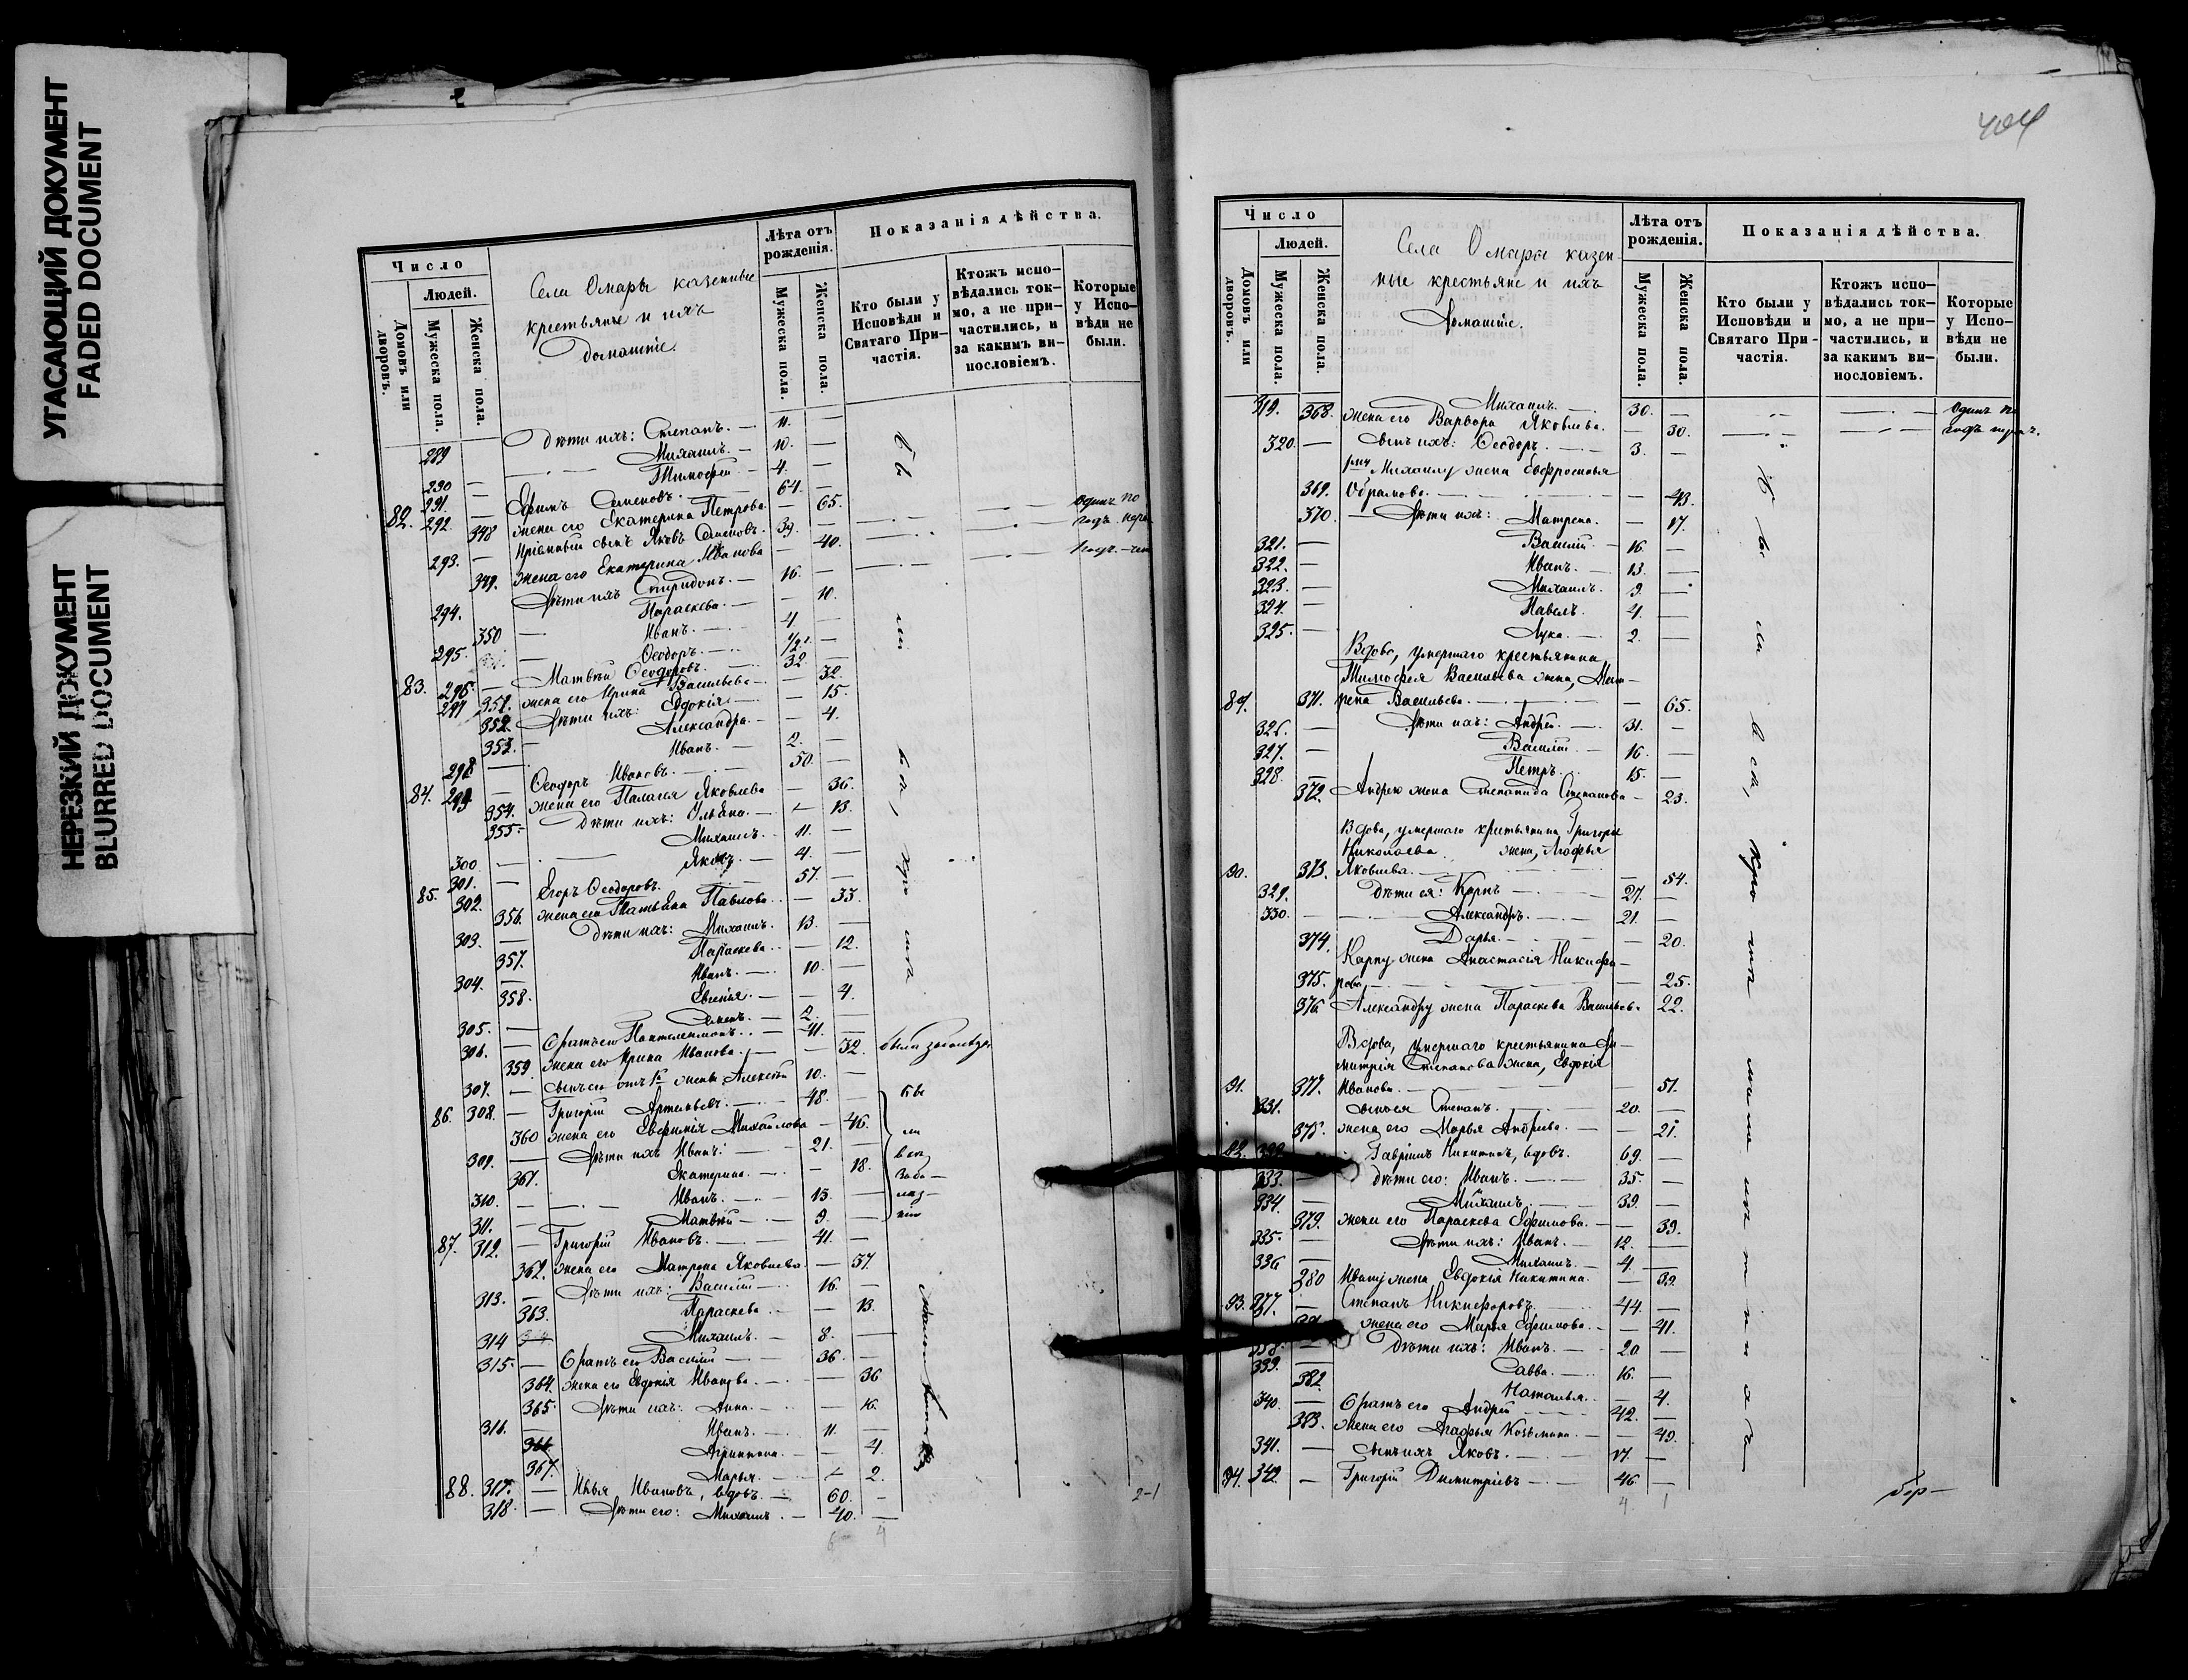 УГАСАЮЩИЙ ДОКУМЕНТ
FADED DOCUMENT
НЕРЕЗКИЙ ДОКУМЕНТ
BLURRED DOCUMENT
Число
Людей.
Домовъ или дворовъ.
Мужеска пола.
Женска пола.
Села Омары казенные
крестьяне и ихъ
домашніе.
Лѣта отъ рожденія.
Мужеска пола.
Женска пола.
Показанія дѣйства.
Кто были у Исповѣди и Святаго Причастія.
Ктожъ исповѣдались токмо, а не причастились, и за какимъ винословіемъ.
Которые у Исповѣди не были.
289 — дѣти ихъ: Степанъ. — 11. —
290 — Михаилъ. — 10. —
291. — Тимофей — 4. —
82. 292. — Ефимъ Семеновъ. 64. —
348 жена его Екатерина Петрова — 65.
293. — Пріемный сынъ Яковъ Семеновъ. 39. —
349. жена его Екатерина Иванова — 40.
294. Дѣти ихъ Спиридонъ. — 16. —
350 — Параскева. — 10.
295. — Иванъ. — 4. —
Ѳеодоръ. — 1/2. —
83. 297 — Матвѣй Ѳеодоровъ. 32 —
351. жена его Ирина Васильева — 32.
352. Дѣти ихъ: Евдокія. — 15.
353. — Александра. — 4.
298. — Иванъ. — 2. —
84. 299 — Ѳеодоръ Ивановъ. 50. —
354. жена его Палагея Яковлева — 36.
355. Дѣти ихъ: Ульяна. — 13.
300 — Михаилъ. 11. —
301. — Яковъ. — 4. —
85. 302. — Егоръ Ѳеодоровъ. 57. —
356. жена его Татьяна Павлова. — 33.
303. — Дѣти ихъ: Михаилъ. 13. —
357. Параскева. — 12.
304. — Иванъ. 10. —
358. Евгенія. — 4.
305. — Семенъ. — 2. —
306. — Братъ его Пантелеимонъ. 41. —
359. жена его Ирина Иванова. — 32.
307. — сынъ его отъ 1й жены Алексѣй 10. —
86. 308. — Григорій Артемьевъ. 48. —
360 жена его Евфимія Михайлова — 46.
309. — Дѣти ихъ Иванъ. 21. —
361. Екатерина. — 18.
310. — Иванъ. 13. —
311. — Матвѣй — 9. —
87. 312. — Григорій Ивановъ. 41. —
362. жена его Матрона Яковлева — 37.
313. — Дѣти ихъ: Василій 16. —
363. Параскева. — 13.
314 Михаилъ. — 8. —
315. — Братъ его Василій 36. —
364. жена его Евдокія Иванова. — 36
365. Дѣти ихъ: Анна. — 16.
316. — Иванъ. 11. —
366. Агриппина — 4.
367. Марья. — 2.
88. 317. — Илья Ивановъ, вдовъ. 60. —
318. — Дѣти его: Михаилъ. — 40. —
2-1
404
Число
Людей.
Домовъ или дворовъ.
Мужеска пола.
Женска пола.
Села Омары казен-
ные крестьяне и ихъ
домашніе.
Лѣта отъ рожденія.
Мужеска пола.
Женска пола.
Показанія дѣйства.
Кто были у Исповѣди и Святаго Причастія.
Ктожъ исповѣдались токмо, а не причастились, и за какимъ винословіемъ.
Которые у Исповѣди не были.
319. — Михаилъ. 30. —
368. жена его Варвара Яковлева. — 30.
320. — сынъ ихъ: Ѳеодоръ. 3. —
Михаилу жена Евфросинья
369. Абрамова. — 43.
370. — Дѣти ихъ: Матрена. — 17.
321. — Василій — 16. —
322. — Иванъ. — 13. —
323. — Михаилъ. 9. —
324. — Павелъ. 4. —
325. — Лука. 2. —
Вдова, умершаго крестьянина
Тимофея Васильева жена, Мат-
89. 371. рена Васильева. — 65.
326. — Дѣти ихъ: Андрей. 31. —
327. — Василій 16. —
328. — Петръ. 15. —
372. Андрею жена Степанида Степанова — 23.
Вдова, умершаго крестьянина Григорія
Николаева жена, Агафья
90. 373. Яковлева. — 54.
329. Дѣти ея: Карпъ 27. —
330. — Александръ. 21. —
374. Дарья. — 20.
Карпу жена Анастасія Никифо-
375. рова, — 25.
376 Александру жена Параскева Васильев. 22.
Вдова, умершаго крестьянина Ди-
митрія Степанова жена, Евдокія
91. 377. Иванова. — 51.
331. сынъ ея Степанъ. 20. —
378. жена его Марья Андреева. — 21.
92. 332 Гавріилъ Никитинъ, вдовъ. 69. —
333. — дѣти его: Иванъ. 35. —
334. — Михаилъ. 39. —
379. жена его Параскева Ефимова. — 39.
335. — Дѣти ихъ: Иванъ. — 12. —
336 — Михаилъ — 4. —
380 Ивану жена Евдокія Никитина. — 32.
93. 337. — Степанъ Никифоровъ. 44. —
жена его Марья Ефимова. — 41.
338. — Дѣти ихъ: Иванъ. — 20 —
339. — Савва. 16. —
382. Наталья. — 4.
340. — Братъ его Андрей 42. —
383. жена его Агафья Козьмина. — 49.
341. — сынъ ихъ Яковъ. 17. —
94. 342. — Григорій Димитріевъ — 46. —
4 1